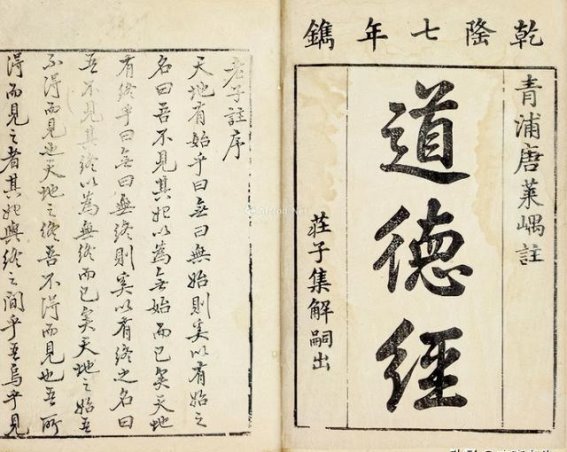 乾隆七年鐫
青浦唐萊嵎註
道德經
荘子集解嗣出
老子註序
天地有始乎曰无曰無始則奚以有始之
名曰吾不見其始以為无始而已矣天地
有終乎曰无曰無終則奚以有終之名曰
吾不見其終以為無終而已矣天地之始吾
不得而見也天地之終吾不得而見也吾所
得而見之者其始與終之間乎吾烏乎見